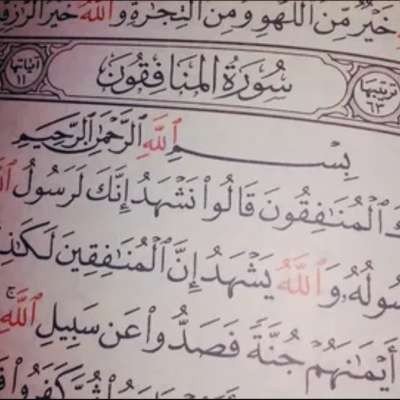 خَيْرٌ مِّنَ ٱللَّهْوِ وَمِنَ ٱلتِّجَٰرَةِ وَٱللَّهُ خَيْرُ ٱلرَّٰزِقِ
ترتيبها ٦٣ سُورَةُ الْمُنَافِقُونَ آياتها ١١
بِسْمِ ٱللَّهِ ٱلرَّحْمَٰنِ ٱلرَّحِيمِ
كَ ٱلْمُنَٰفِقُونَ قَالُوا۟ نَشْهَدُ إِنَّكَ لَرَسُولُ ٱل
سُولُهُۥ وَٱللَّهُ يَشْهَدُ إِنَّ ٱلْمُنَٰفِقِينَ لَكَٰذِ
أَيْمَٰنَهُمْ جُنَّةً فَصَدُّوا۟ عَن سَبِيلِ ٱللَّهِ ۚ